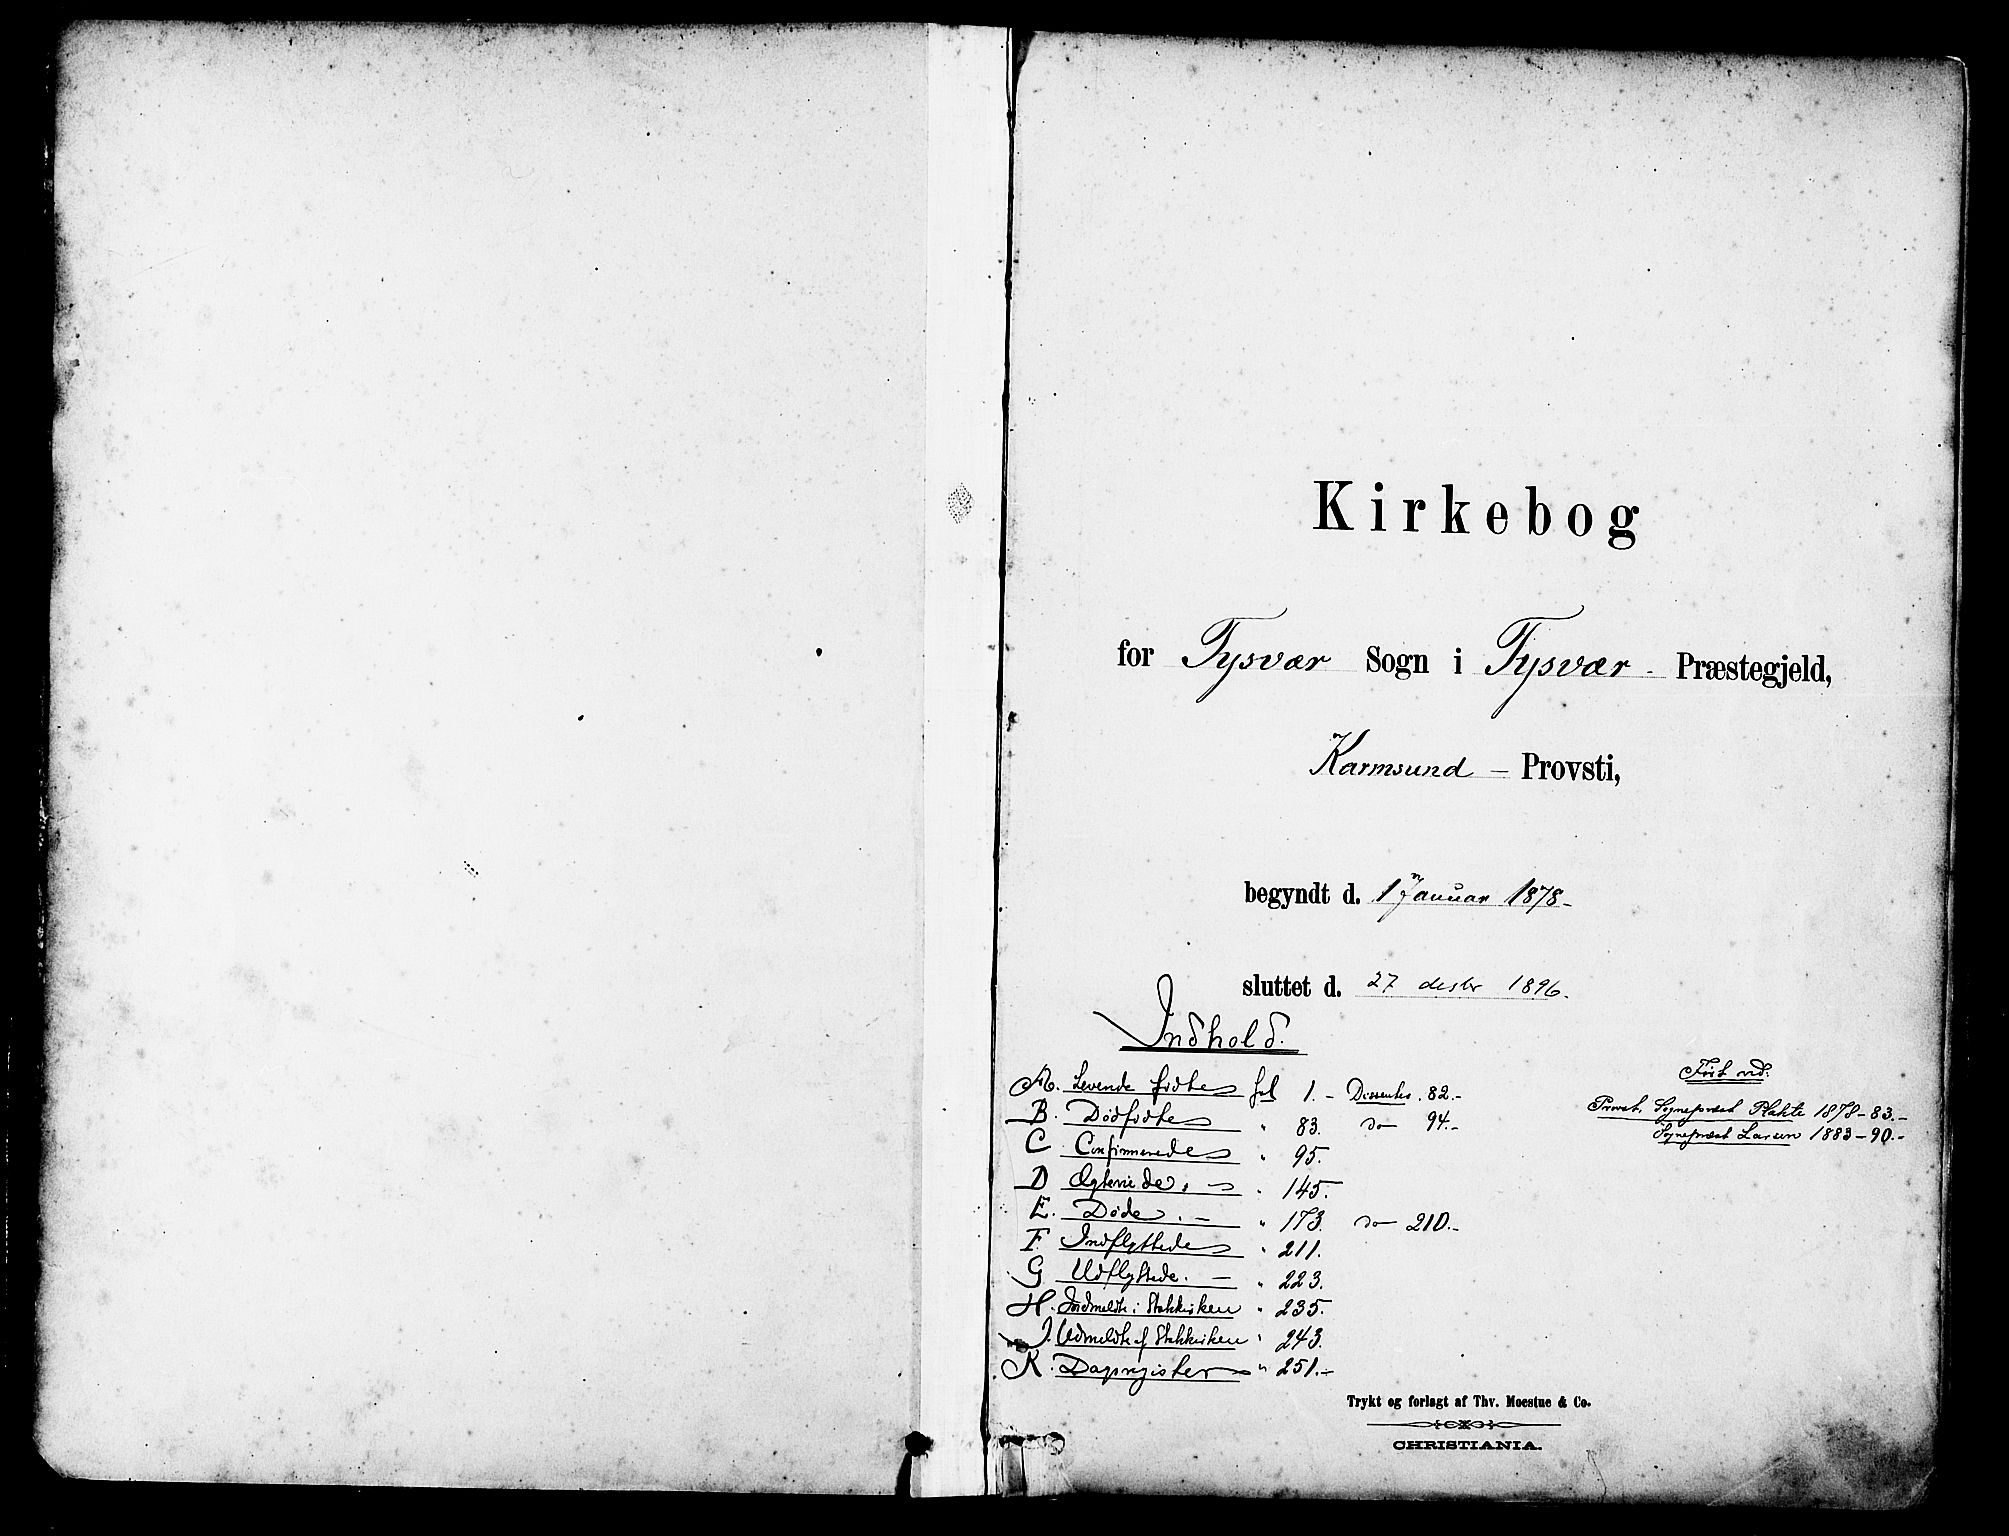 Kirkebog
for Tysvær Sogn i Tysvær - Præstegjeld,
Karmsund - Provsti,
begyndt d. 1 Januar 1878-
sluttet d. 27 desbr 1896.
Indhold.
A. Levende fødte fol 1. - Dissentes. 82.-
B. Dødfødte " 83. do 94.-
C Confirmerede " 95.
D Ægteviede. - " 145.
E. Døde. - " 173. do 210.-
F. Indflyttede " 211.
G Udflyttede. - " 223.
H. Indmeldte i Statskirken " 235.
J. Udmeldte af Statskirken " 243.
K. Dagsregister " 251.-
Ført ved:
Provst, Sognepræst 1878-83.-
Sognepræst Larsen 1883-90.-
Trykt og forlagt af Thv. Moestue & Co.
CHRISTIANIA.